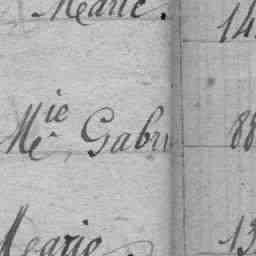 Marie. 14
M.ie Gabri 88
Marie. 13